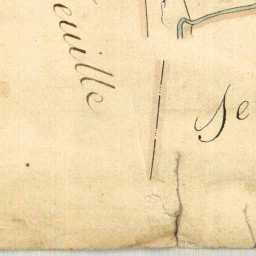 euille
Se